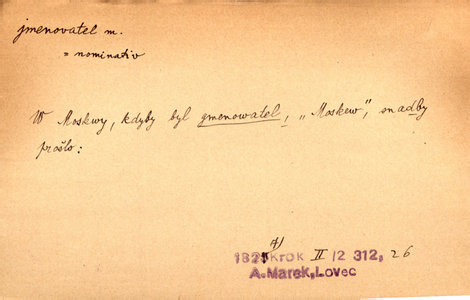 jmenovatel m.
= nominativ
W Moskwy, kdyby byl gmenowatel, „Moskew", snadby
prošlo:
A)
1821 Krok II /2 312, 26
A. Marek, Lovec